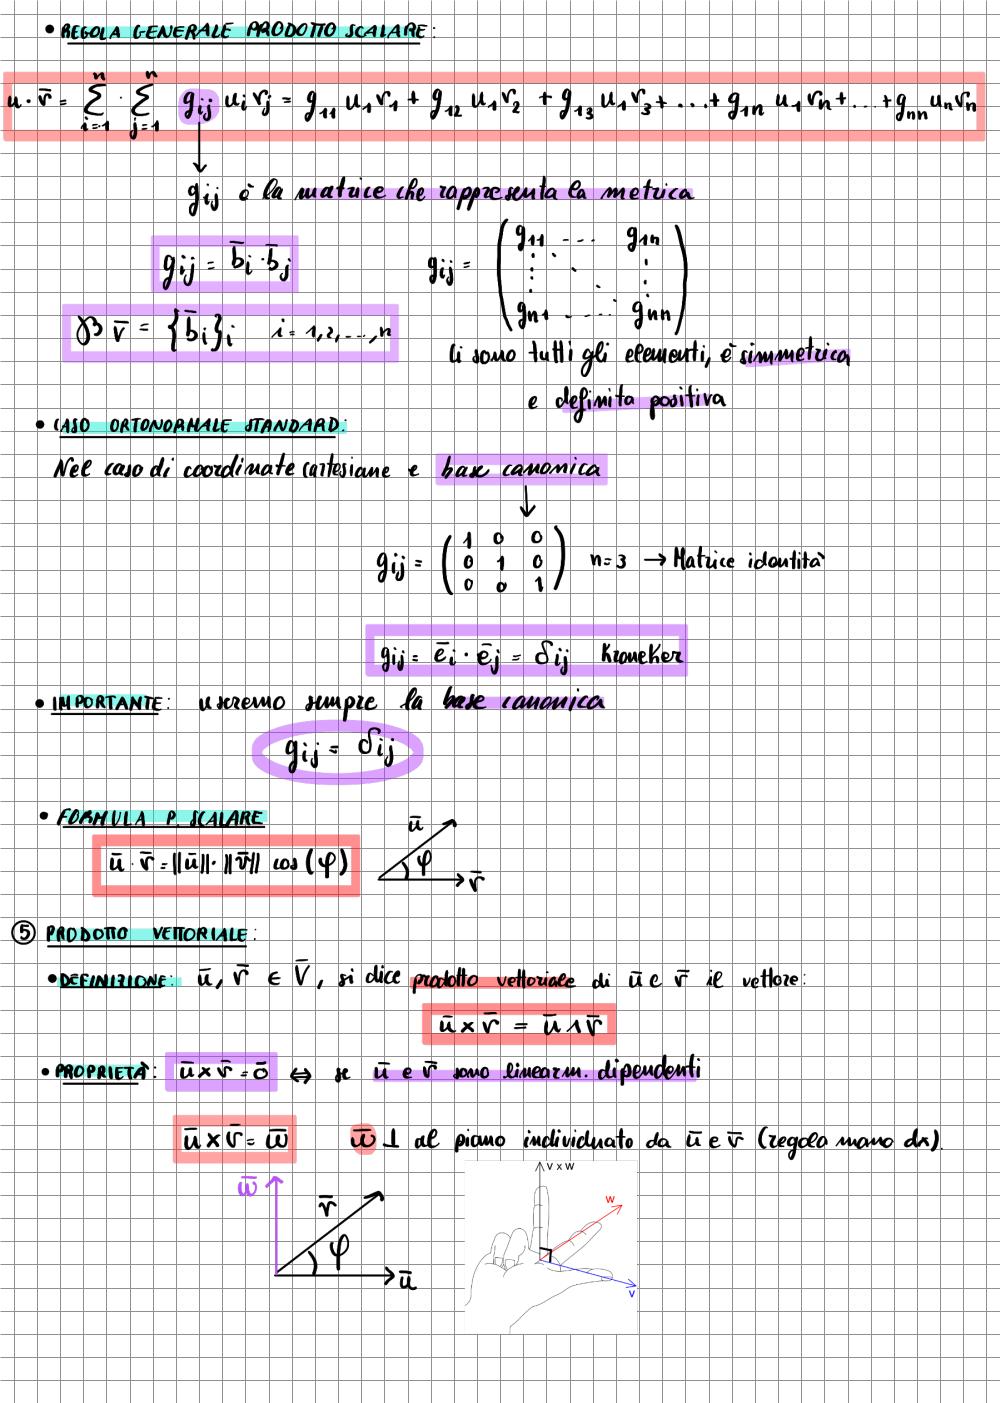 • REGOLA GENERALE PRODOTTO SCALARE:
u · v̄ = Σ_{i=1}^{n} · Σ_{j=1}^{n} g_{ij} u_i v_j = g_{11} u_1 v_1 + g_{12} u_1 v_2 + g_{13} u_1 v_3 + ... + g_{1n} u_1 v_n + ... + g_{nn} u_n v_n
g_{ij} è la matrice che rappresenta la metrica
g_{ij} = b̄_i · b̄_j
g_{ij} = ( g_{11} ---- g_{1n}
g_{n1} ----- g_{nn} )
ℬ v̄ = {b̄_i}_i i = 1,2,...,n
Ci sono tutti gli elementi, è simmetrica
e definita positiva
• CASO ORTONORMALE STANDARD:
Nel caso di coordinate cartesiane e base canonica
g_{ij} = ( 1 0 0
0 1 0
0 0 1 ) n=3 → Matrice identità
g_{ij} = ē_i · ē_j = δ_{ij} KroneKer
• IMPORTANTE: useremo sempre la base canonica
g_{ij} = δ_{ij}
• FORMULA P. SCALARE
ū · v̄ = ||ū|| · ||v̄|| cos (φ)
ū
φ
v̄
⑤ PRODOTTO VETTORIALE:
• DEFINIZIONE: ū, v̄ ∈ V̄, si dice prodotto vettoriale di ū e v̄ il vettore:
ū × v̄ = ū ∧ v̄
• PROPRIETÀ: ū × v̄ = ō ⇔ se ū e v̄ sono linearm. dipendenti
ū × v̄ = w̄ w̄ ⊥ al piano individuato da ū e v̄ (regola mano dx).
w̄
v̄
φ
ū
v x w
w
v